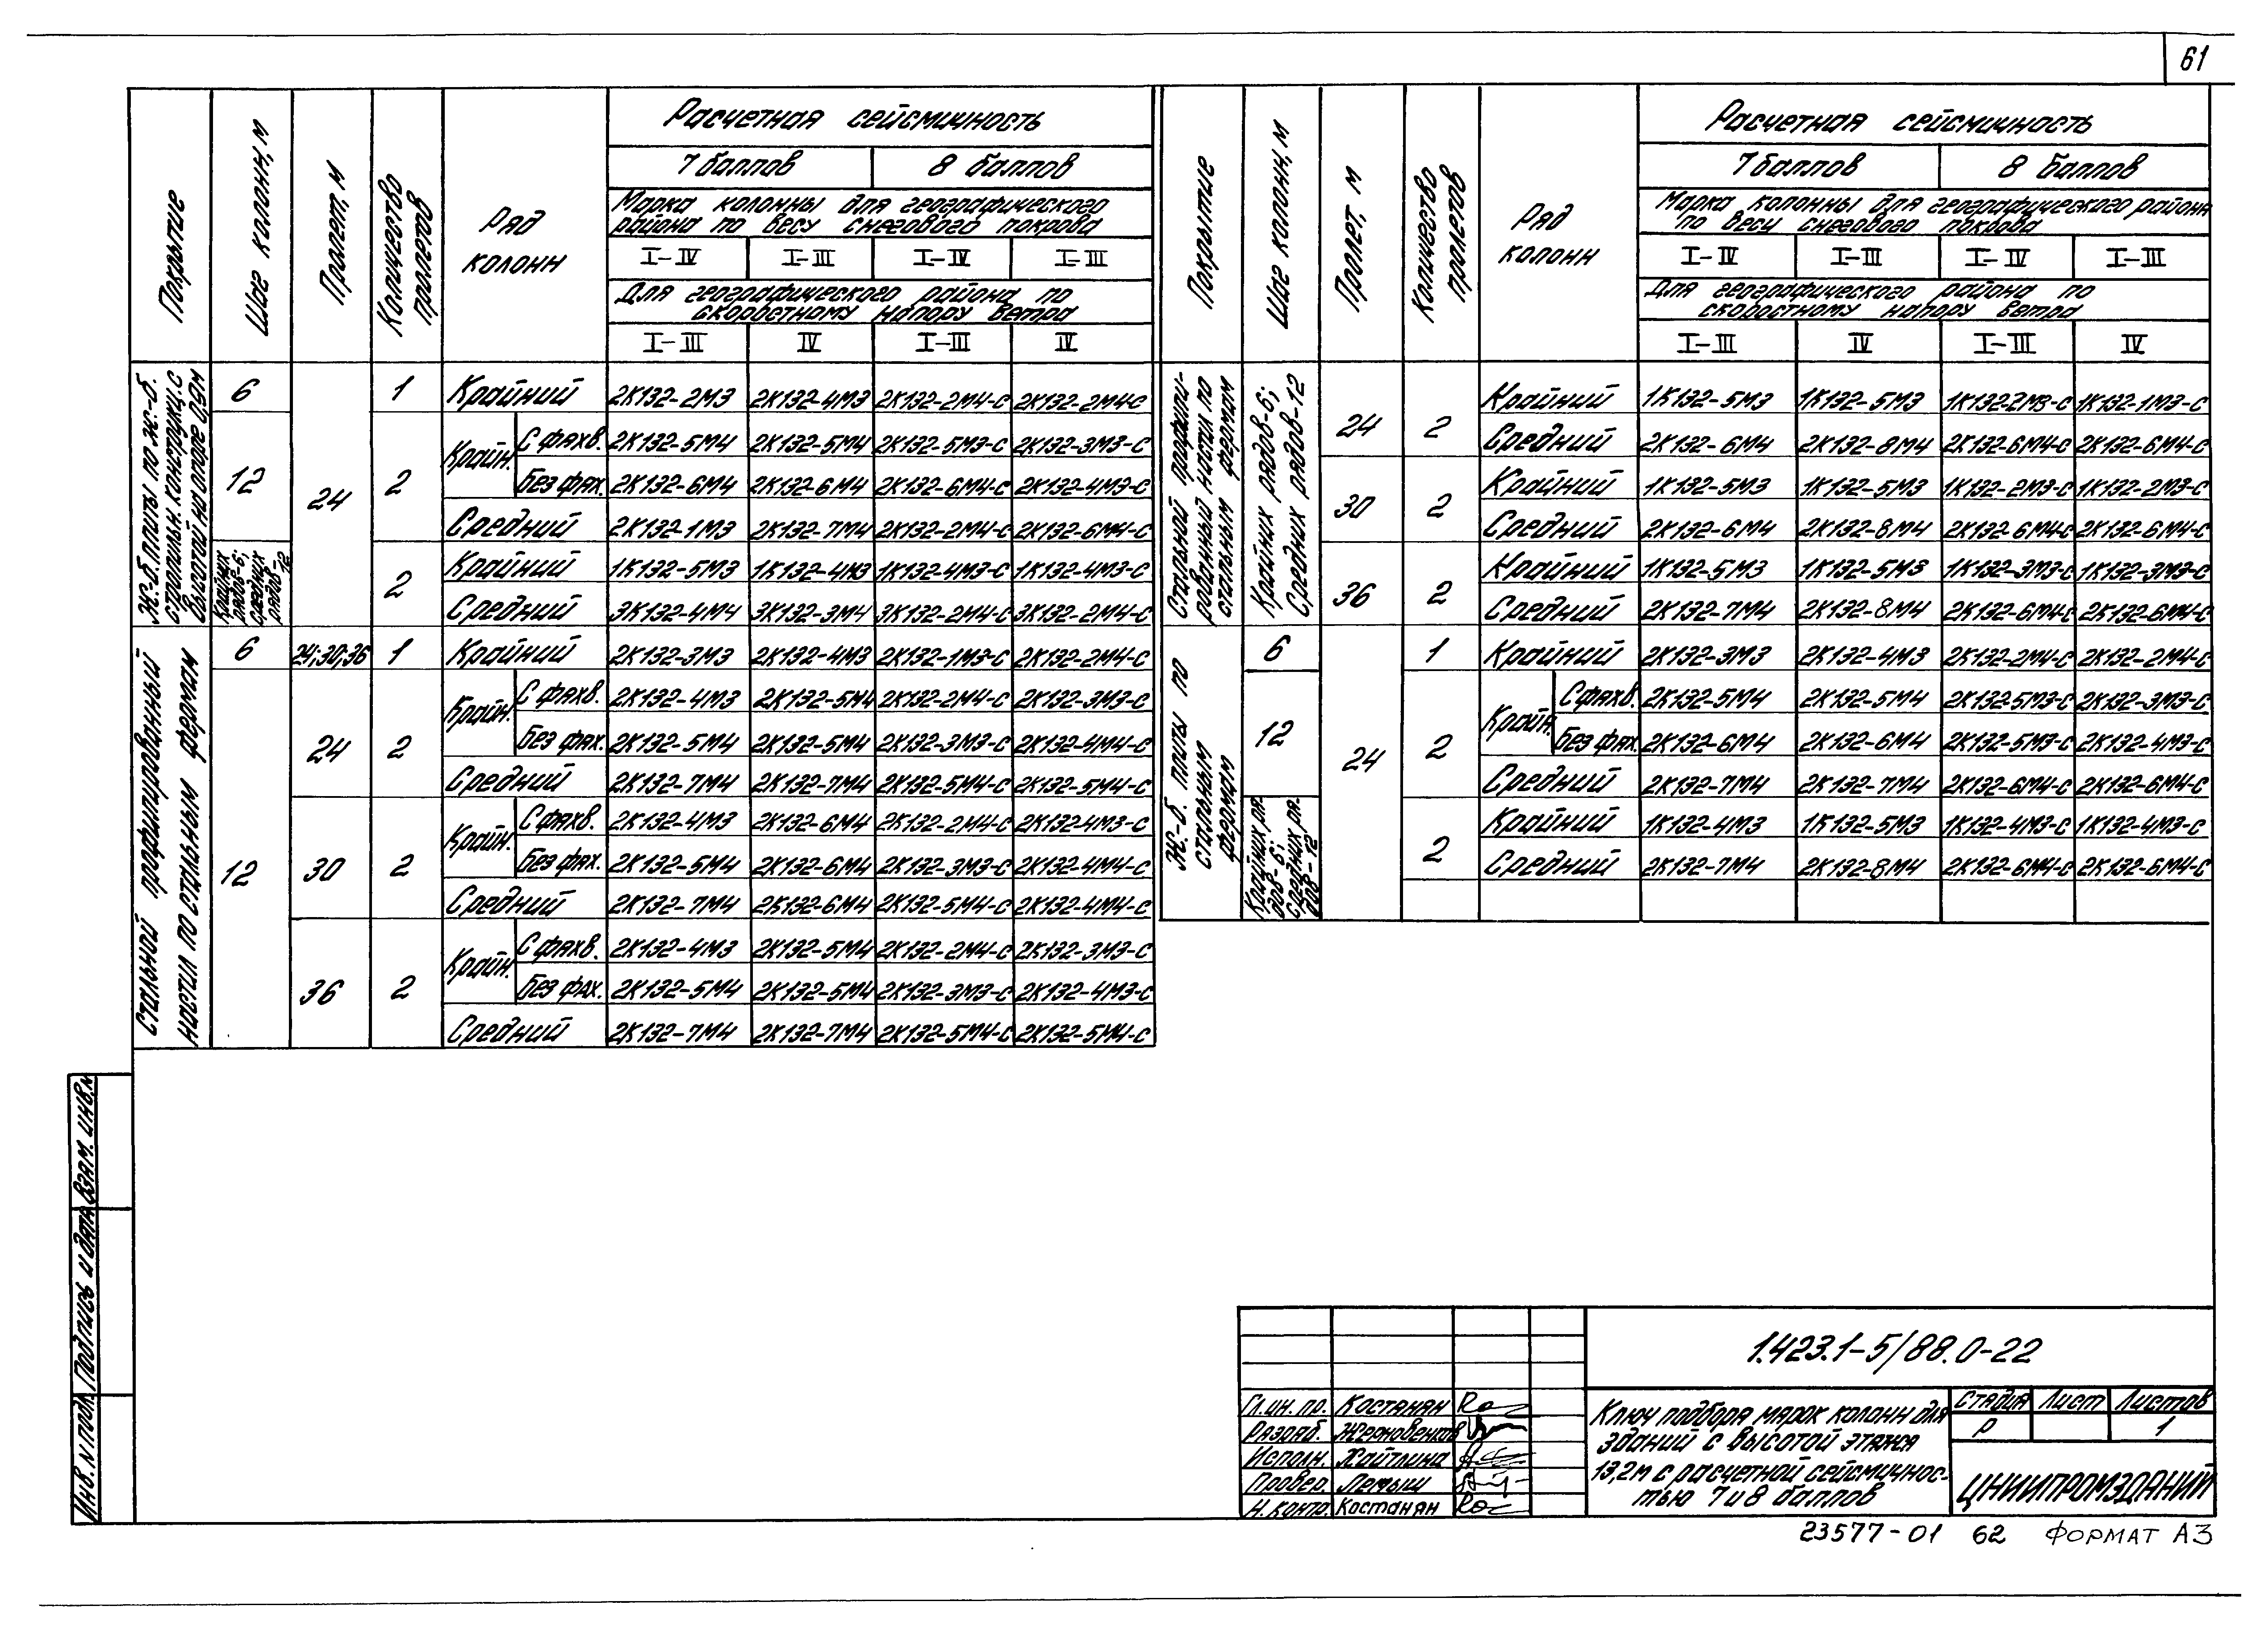 61
Покрытие
Шаг колонн, м
Пролет, м
Количество пролетов
Ряд колонн
Расчетная сейсмичность
7 баллов 8 баллов
Марка колонны для географического
района по весу снегового покрова
I-IV I-III I-IV I-III
Для географического района по
скоростному напору ветра
I-III IV I-III IV
Ж.-б. плиты по ж.-б. стропильн. конструкц. с высотой на опоре 0,9м
6 24 1 Крайний 2К132-2М3 2К132-4М3 2К132-2М4-С 2К132-2М4-С
12 2 Крайн. С фахв. 2К132-5М4 2К132-5М4 2К132-5М3-С 2К132-3М3-С
Без фах. 2К132-6М4 2К132-6М4 2К132-6М4-С 2К132-4М3-С
Средний 2К132-1М3 2К132-7М4 2К132-2М4-С 2К132-6М4-С
Крайних рядов-6; средних рядов-12
2 Крайний 1К132-5М3 1К132-4М3 1К132-4М3-С 1К132-4М3-С
Средний 3К132-4М4 3К132-3М4 3К132-2М4-С 3К132-2М4-С
Стальной профилированный настил по стальным фермам
6 24;30;36 1 Крайний 2К132-3М3 2К132-4М3 2К132-1М3-С 2К132-2М4-С
12 24 2 Крайн. С фахв. 2К132-4М3 2К132-5М4 2К132-2М4-С 2К132-3М3-С
Без фах. 2К132-5М4 2К132-5М4 2К132-3М3-С 2К132-4М4-С
Средний 2К132-7М4 2К132-7М4 2К132-5М4-С 2К132-5М4-С
30 2 Крайн. С фахв. 2К132-4М3 2К132-6М4 2К132-2М4-С 2К132-4М3-С
Без фах. 2К132-5М4 2К132-6М4 2К132-3М3-С 2К132-4М4-С
Средний 2К132-7М4 2К132-6М4 2К132-5М4-С 2К132-4М4-С
36 2 Крайн. С фахв. 2К132-4М3 2К132-5М4 2К132-2М4-С 2К132-3М3-С
Без фах. 2К132-5М4 2К132-5М4 2К132-3М3-С 2К132-4М3-С
Средний 2К132-7М4 2К132-7М4 2К132-5М4-С 2К132-5М4-С
Покрытие
Шаг колонн, м
Пролет, м
Количество пролетов
Ряд колонн
Расчетная сейсмичность
7 баллов 8 баллов
Марка колонны для географического района
по весу снегового покрова
I-IV I-III I-IV I-III
Для географического района по
скоростному напору ветра
I-III IV I-III IV
Стальной профили-рованный настил по стальным фермам
Крайних рядов-6; Средних рядов-12
24 2 Крайний 1К132-5М3 1К132-5М3 1К132-2М3-С 1К132-1М3-С
Средний 2К132-6М4 2К132-8М4 2К132-6М4-С 2К132-6М4-С
30 2 Крайний 1К132-5М3 1К132-5М3 1К132-2М3-С 1К132-2М3-С
Средний 2К132-6М4 2К132-8М4 2К132-6М4-С 2К132-6М4-С
36 2 Крайний 1К132-5М3 1К132-5М3 1К132-3М3-С 1К132-3М3-С
Средний 2К132-7М4 2К132-8М4 2К132-6М4-С 2К132-6М4-С
Ж.-б. плиты по стальным фермам
6 24 1 Крайний 2К132-3М3 2К132-4М3 2К132-2М4-С 2К132-2М4-С
12 2 Крайн. С фахв. 2К132-5М4 2К132-5М4 2К132-5М3-С 2К132-3М3-С
Без фах. 2К132-6М4 2К132-6М4 2К132-5М3-С 2К132-4М3-С
Средний 2К132-7М4 2К132-7М4 2К132-6М4-С 2К132-6М4-С
Крайних ря-дов-6; средних ря-дов-12
2 Крайний 1К132-4М3 1К132-5М3 1К132-4М3-С 1К132-4М3-С
Средний 2К132-7М4 2К132-8М4 2К132-6М4-С 2К132-6М4-С
Инв. N подл. Подпись и дата Взам. инв. N
1.423.1-5/88.0-22
Гл. ин. пр. Костанян
Разраб. Жерновенков
Исполн. Хайтлина
Провер. Летыш
Н. контр. Костанян
Ключ подбора марок колонн для
зданий с высотой этажа
13,2м с расчетной сейсмичнос-
тью 7 и 8 баллов
Стадия Лист Листов
Р 1
ЦНИИПРОМЗДАНИЙ
23577-01 62 Формат А3